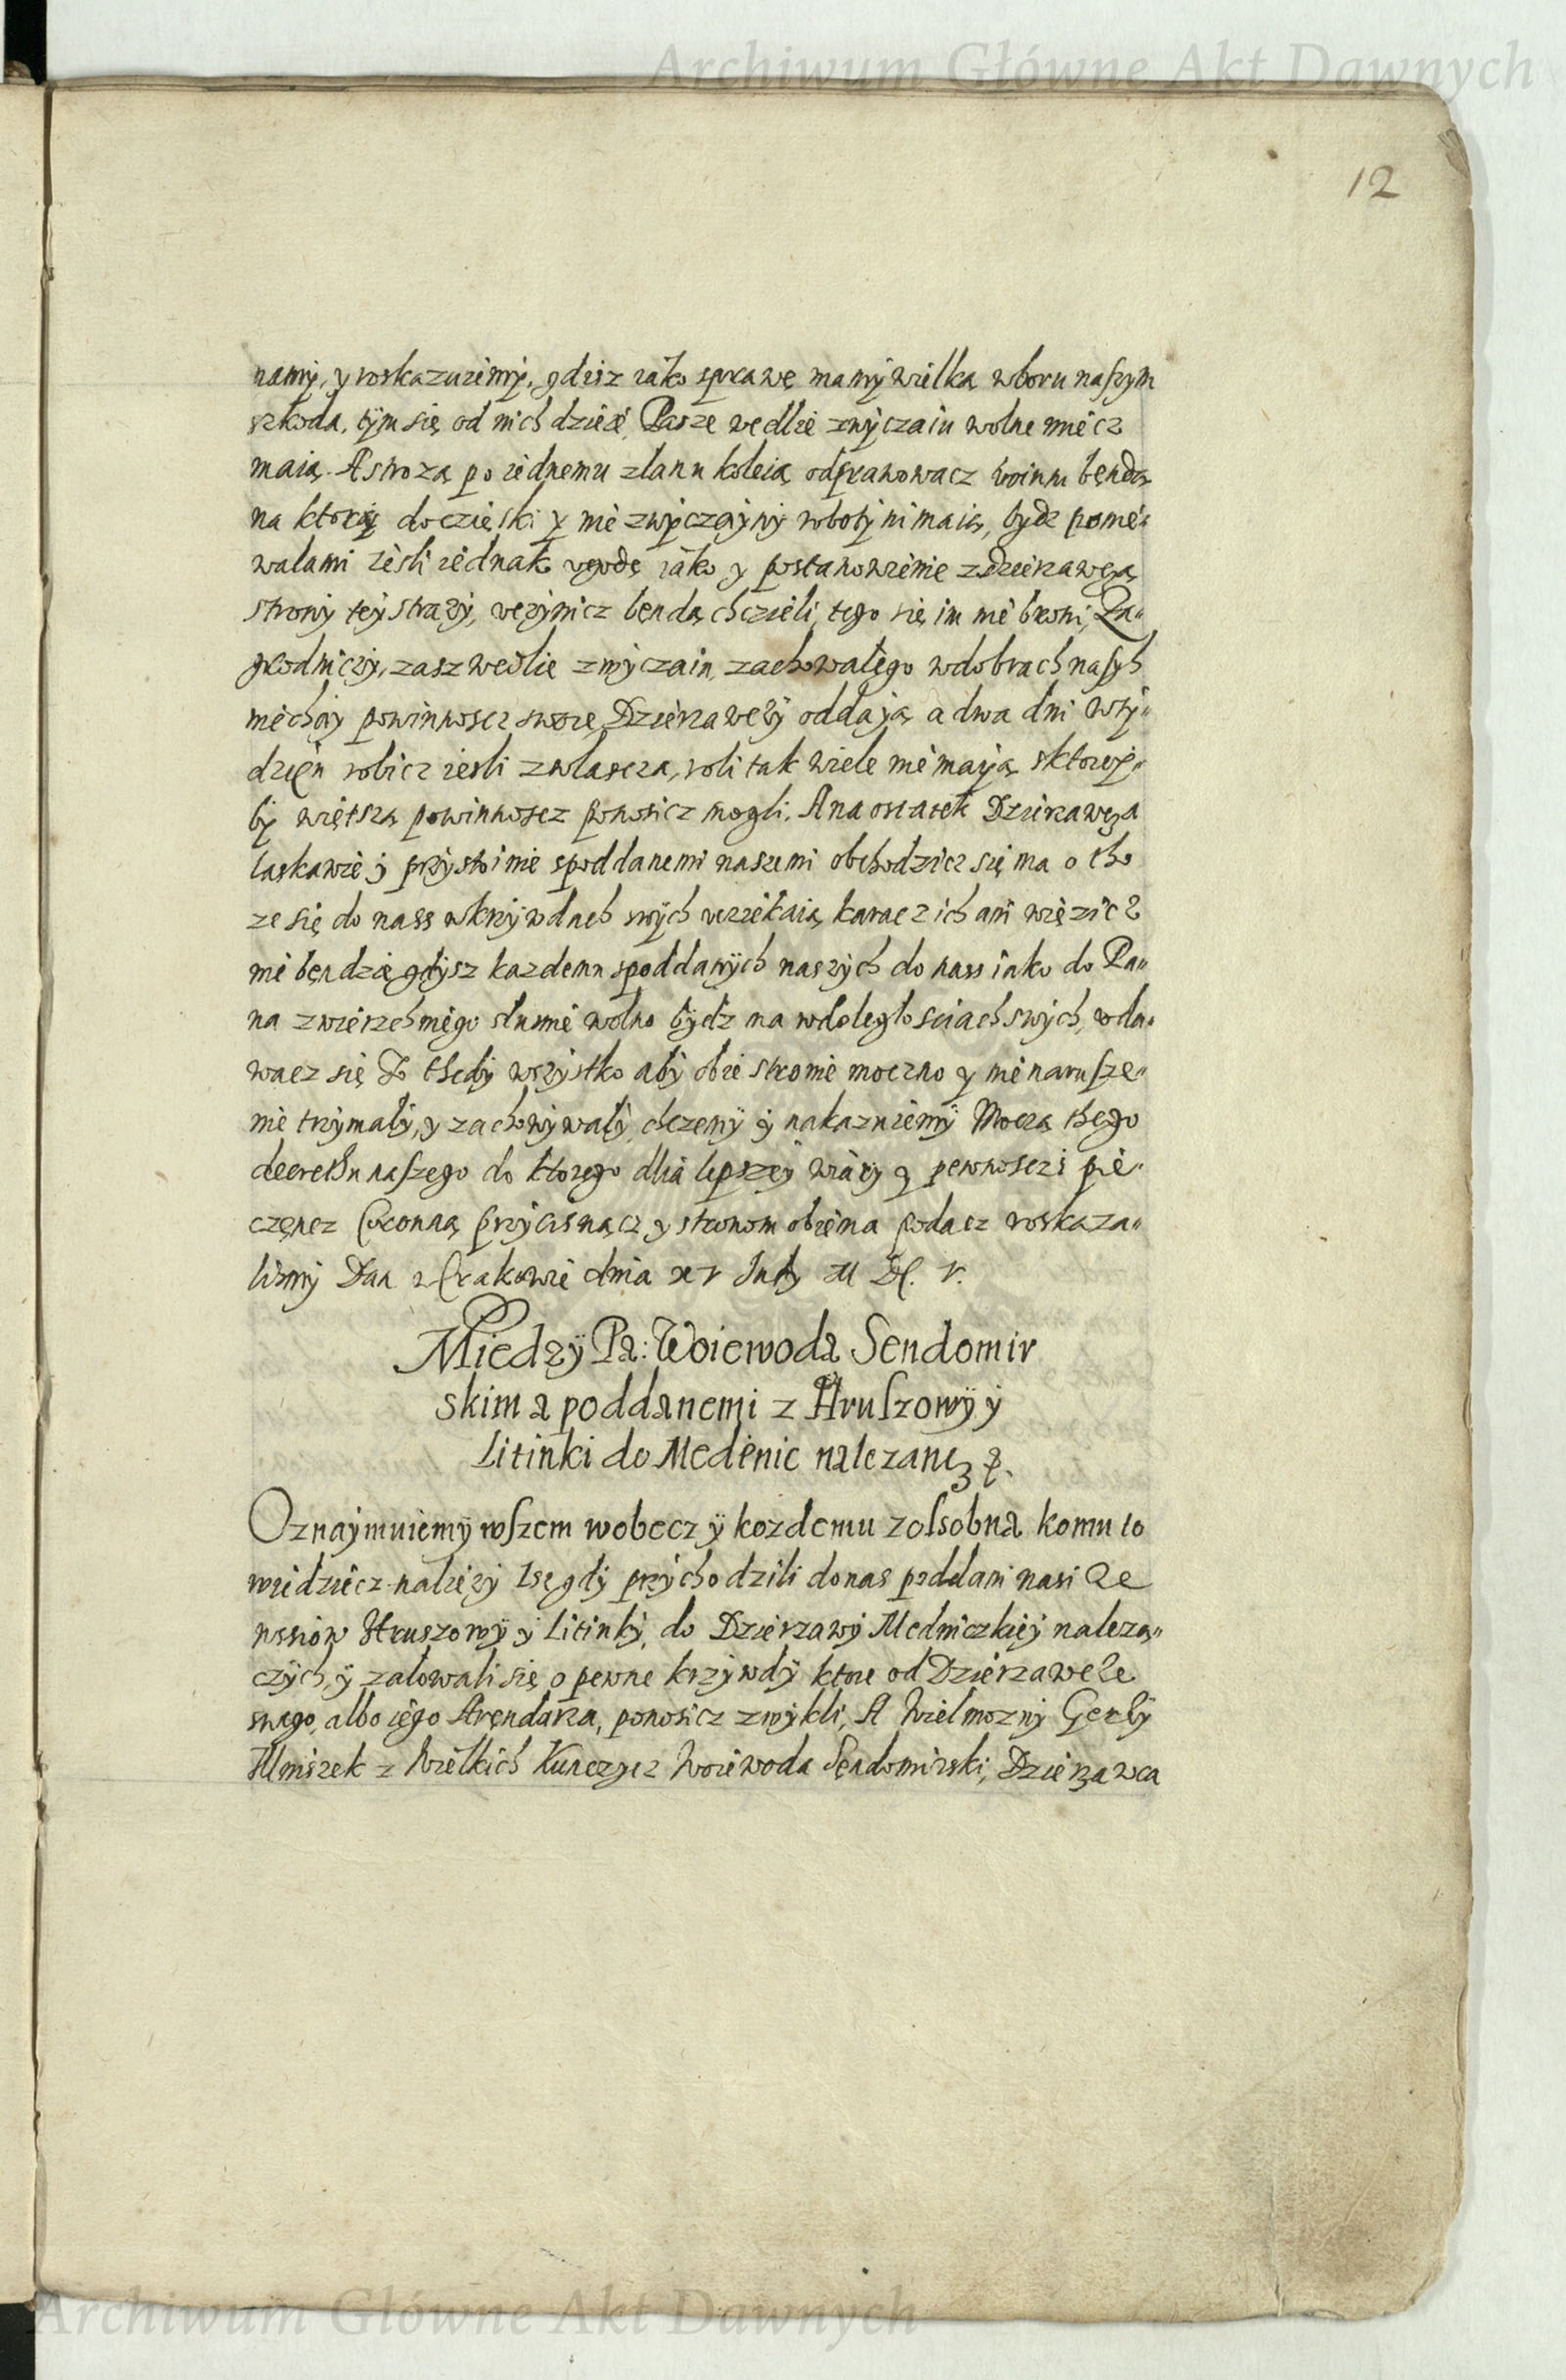 Archiwum Główne Akt Dawnych
12
namy, y roskazuiemy, gdisz iako sprawę mamy wielka wboru naszym
szkoda, tym się od nich dzieie, Pasze wedlie zwyczaiu wolne miecz
maią. A strozą po iednemu złanu koleią odprawowacz winni bęndą
na ktorey do cięski y nie zwyczayny roboty ni maią, bydz
walami iesli iednak ugodę iako y postanowienie zdzierzawcą
strony tey strazy, uczynicz bendą chczieli, tego się im nie broni, Za„
grodniczy, zasz wedlie zwyczaiu, zachowałego wdobrach naszych
niechay powinnoscz swoię Dzierzawczy oddają a dwa dni wty„
dzięn robicz iesli zwlascza, roli tak wiele nie mają sktorey„
by więtszą powinnoscz ponosicz mogli. A na ostatek Dzierzawca
laskawie y przystoinie spoddanemi naszemi obchodzicz się ma o tho
ze się do nass wkrzywdach swych uciekaią karacz ich ani więzicz
nie bęndzie gdysz kazdemu spoddanych naszych do nass iako do Pa„
na zwierzchniego słusnie wolno bydz ma wdoległosciach swych, uda„
wacz się To thedy wszystko aby obie stronie moczno y nienarusze„
nie trzymały, y zachowywały, chczemy y nakazuiemy Moczą thego
decrethu naszego do ktorego dlia lepszey wiary y pewnosczi pie„
częncz Coronną przycisnącz y stronom obiema podacz roskaza„
lismy Dan w Crakowie dnia xv July M DC. V.
Miedzy Pa: Woiewodą Sendomir
skim a poddanemi z Hruszowy y
Litinki do Medenic nalezanc
Oznaymuiemy wszem wobecz y kozdemu zossobna komu to
wiedziecz naliezy Isz gdy przychodzili do nas poddani nasi Ze
wssiow Hruszowy y Litinky, do Dzierzawy Medniczkiey nalezą„
czych, y zalowali się o pewne krzywdy ktore od Dzierzawcze
swego, albo iego Aręndarza, ponosicz zwykli, A Wielmozny Gerzy
Mniszek z Wielkich Kunczycz Woiewoda Sęndomirski, Dzierzawca
Archiwum Główne Akt Dawnych